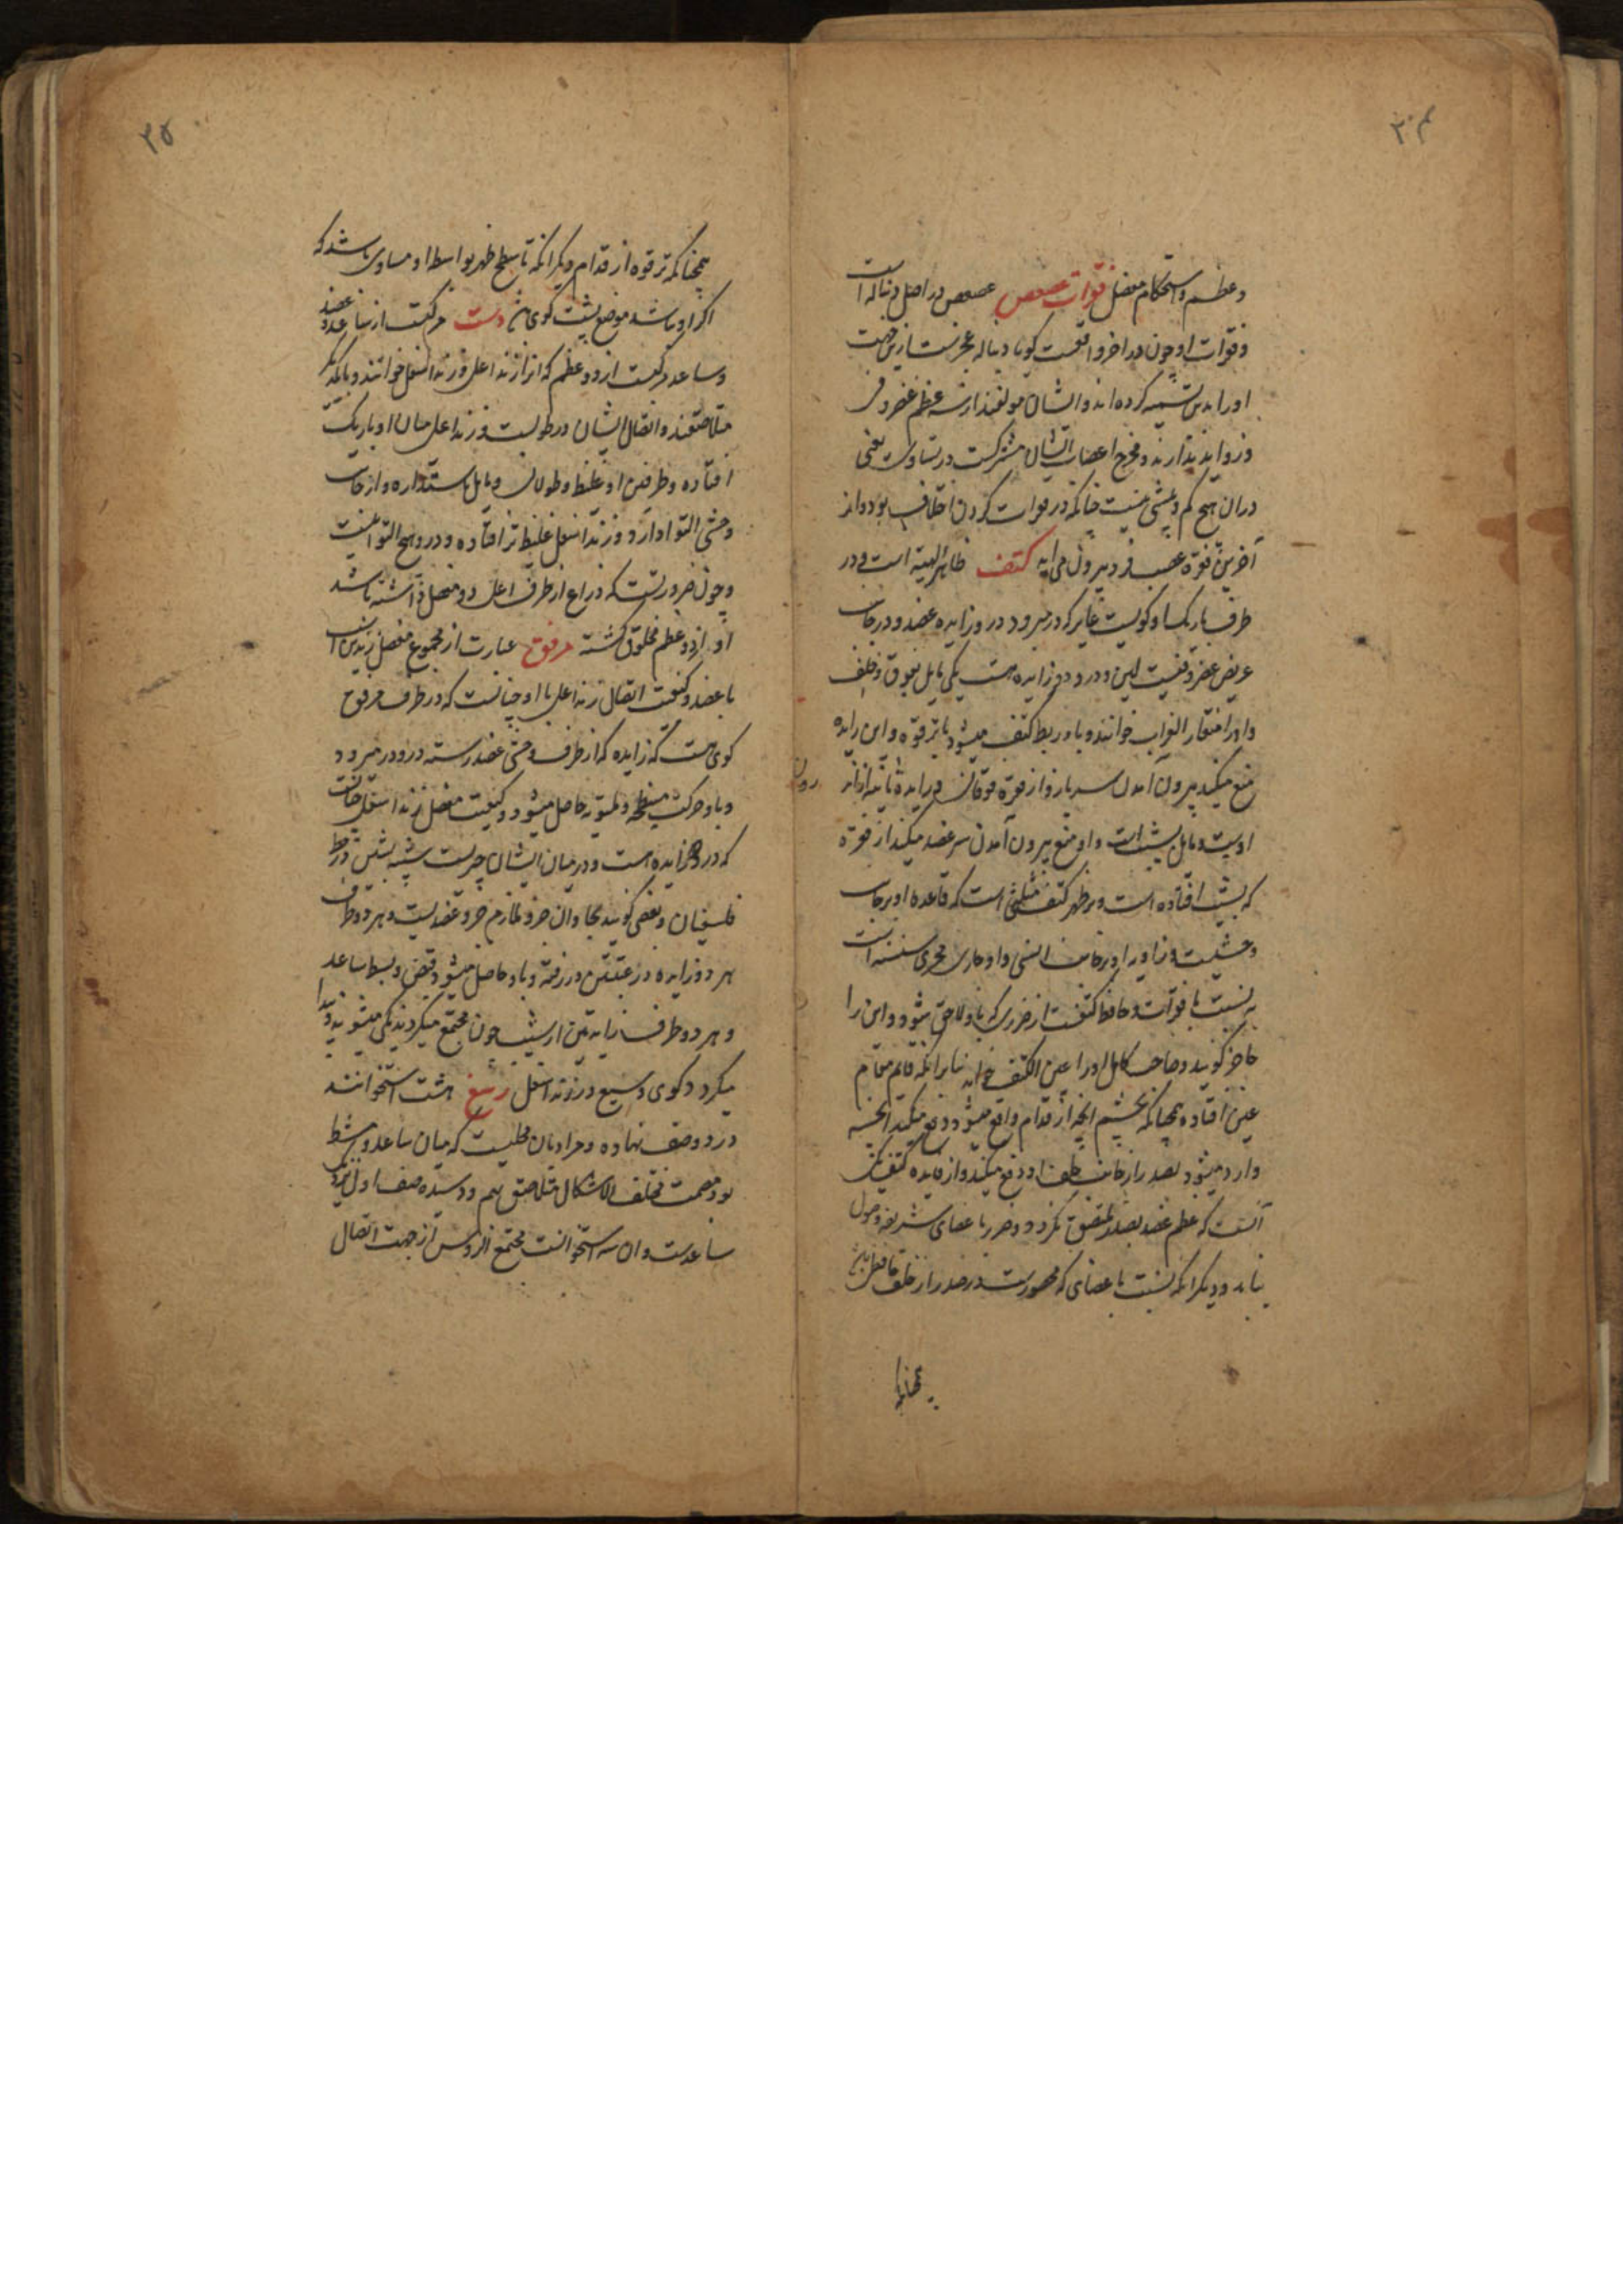 ۳۴
و عظم و استحکام مفصل فقرات عصعص عصعص در اصل دنباله است
و فقرات او چون در آخر واقعست کویا دنباله عجزست ازین جهت
اورا بدین تسمیه کرده اند و ایشان مولفند از سه عظم غضروفی
و زواید ندارند و مخرج اعصاب ایشان مشترکست در تساوی یعنی
دران هیچ کم و بیشی نیست چنانکه در فقرات کردن اختلاف بود و از
آخرین فقره عصب فرد بیرون می اید کتف ظاهر الهیه است و در
طرف باریک او کویست غایر که در میرود درو زایده عضد و در جانب
عریض غضروفیست لین و درو دو زایده هست یکی مایل بفوق و خلف
و اورا منقار الغراب خوانند و باو ربط کتف میشود با ترقوه و این زایده
منع میکند بیرون آمدن سر بازو از نقره فوقانی و زایده ثانیه از
اوست و مایل بپیش است و او منع بیرون آمدن سر عضد میکند از نقره
که بپیش افتاده است و بر ظهر کتف مثلثی است که قاعده او بر جانب
وحشیست و زاویه او بر جانب انسی و او جاری مجری سنسنه است
به نسبت با فقرات و حافظ کتفست از ضرری که باو لاحق میشود و این را
حاجز کویند و صاحب کامل اورا عین الکتف خواند بنابر آنکه قایم مقام
عین افتاده همچنانکه بچشم آنچه از قدام واقع میشود دفع میکند آنچه
وارد میشود بصدر از جانب خلف او دفع میکند و از فایده کتف یکی
آنست که عظم عضد بصدر ملتصق نکردد و ضرر با عضای شریفه وصول
نیابد و دیکر آنکه نسبت باعضای که محصورست در صدر از خلف حافظ باشد
همچنانکه
۳۵
همچنانکه ترقوه از قدام و دیکر آنکه تا سطح ظهر بواسطه او مساوی باشد که
اکر او نباشد موضع پشت کوی دست مرکبست از ساعد و عضد
و ساعد مرکبست از دو عظم که انرا زند اعلی و زند اسفل خوانند و با یکدیکر
متلاصقند و اتصال ایشان در طولیست و زند اعلی میان او باریک
افتاده و طرفین او غلیظ و طولانی و مایل باستداره و از جانب
وحشی التوا دارد و زند اسفل غلیظ تر افتاده و درو هیچ التوا نیست
و چون ضرورتست که ذراع از طرف اعلی دو مفصل داشته باشد
او از دو عظم مخلوق کشته مرفق عبارت از مجموع مفصل زندین است
با عضد و کیفیت اتصال زند اعلی با او چنانست که در طرف مرفق
کوی هست که زایده که از طرف وحشی عضد رسته درو در میرود
و باو حرکت منبطحه و ملتویه حاصل میشود و کیفیت مفصل زند اسفل چنانست
که درو دو زایده است و در میان ایشان حزیست شبیه بسین در خط
هر دو زایده در عتبتین در رفته و باو حاصل میشود قبض و بسط ساعد
و هر دو طرف زندین از شیب چون مجتمع میکردند یکی میشوند و پیدا
میکردد کوی وسیع در زند اسفل رسغ هشت استخوانند
در دو صف نهاده و مراد بان محلیست که میان ساعد و مشط
بود مصمت مختلف الاشکال متلاصق بهم و رسیده صف اول نزدیک
ساعدست و ان سه استخوانست مجتمع الرؤس از جهت اتصال